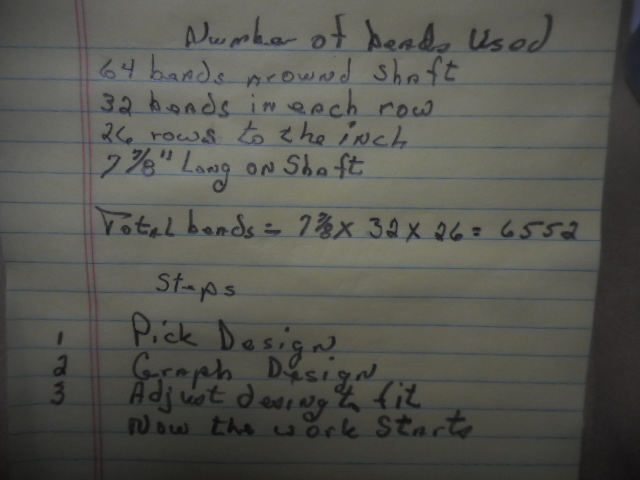 Number of beads Used
64 beads around Shaft
32 beads in each row
26 rows to the inch
7 7/8" Long on Shaft
Total beads = 7 7/8 X 32 X 26 = 6552
Steps
1 Pick Design
2 Graph Design
3 Adjust desing to fit
Now the work Starts